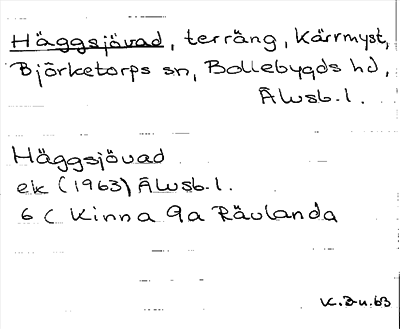 Häggsjövad, terräng, Kärrmyst,
Björketorps sn, Bollebygds hd,
Älvsb. l.
Häggsjövad
ek (1963) Älvsb. l.
6 C Kinna 9a Rävlanda